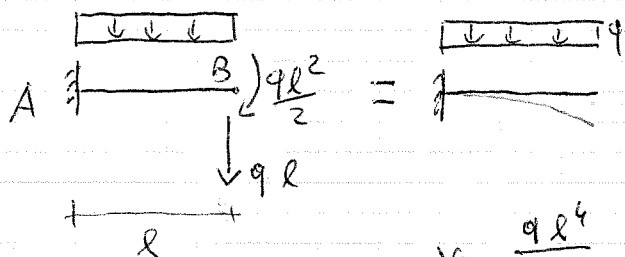 q
A B qℓ²/2 =
qℓ
ℓ
qℓ⁴